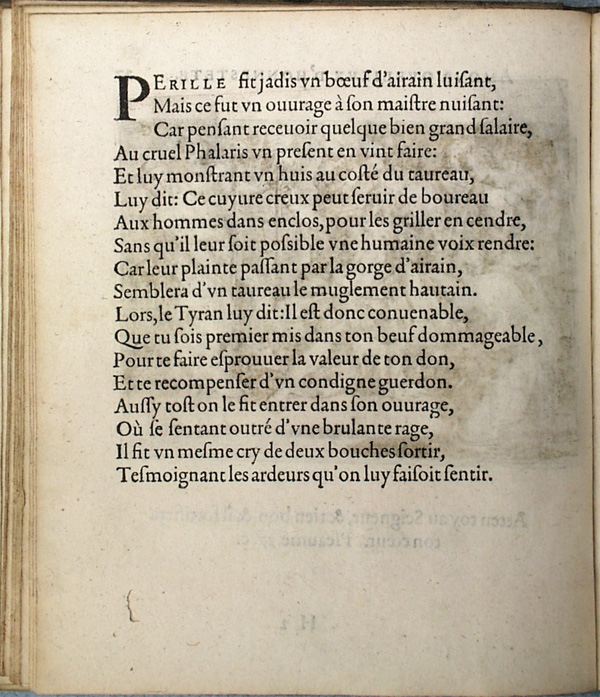 PERILLE fit jadis vn bœuf d'airain luiſant,
Mais ce fut vn ouurage à ſon maiſtre nuiſant:
Car penſant receuoir quelque bien grand ſalaire,
Au cruel Phalaris vn preſent en vint faire:
Et luy monſtrant vn huis au coſté du taureau,
Luy dit: Ce cuyure creux peut ſeruir de boureau
Aux hommes dans enclos, pour les griller en cendre,
Sans qu'il leur ſoit poſsible vne humaine voix rendre:
Car leur plainte paſſant par la gorge d'airain,
Semblera d'vn taureau le muglement hautain.
Lors, le Tyran luy dit: Il eſt donc conuenable,
Que tu ſois premier mis dans ton beuf dommageable,
Pour te faire eſprouuer la valeur de ton don,
Et te recompenſer d'vn condigne guerdon.
Auſſy toſt on le fit entrer dans ſon ouurage,
Où ſe ſentant outré d'vne brulante rage,
Il fit vn meſme cry de deux bouches ſortir,
Teſmoignant les ardeurs qu'on luy faiſoit ſentir.